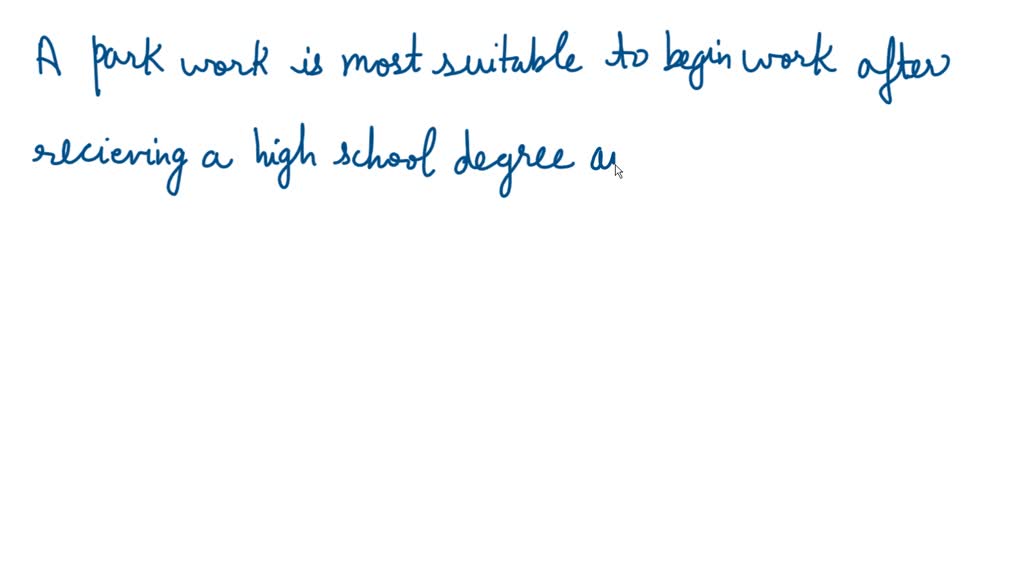 A park work is most suitable to begin work after
recieving a high school degree